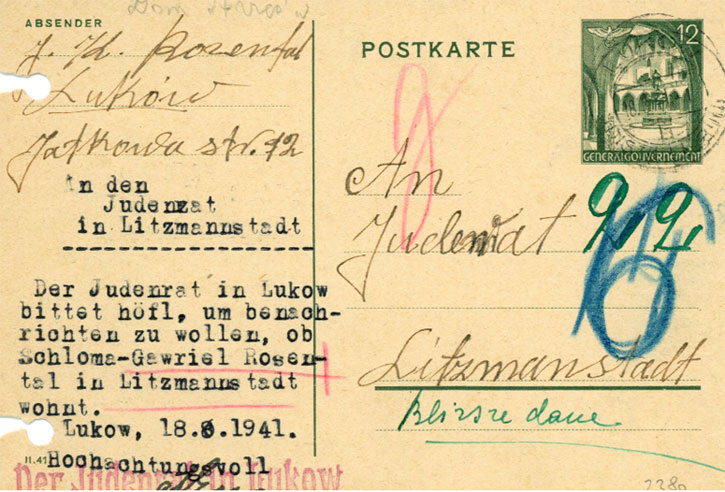 ABSENDER
J. H. Rozental
Łuków
Jatkowa str. 12
In den
Judenrat
in Litzmannstadt
Der Judenrat in Lukow
bittet höfl, um benach-
richten zu wollen, ob
Schloma-Gawriel Rosen-
tal in Litzmannstadt
wohnt.
Lukow, 18.8.1941.
Hochachtungsvoll
II.41
Der Judenrat in Lukow
POSTKARTE
12
GENERALGOUVERNEMENT
An
Judenrat
Litzmanstadt
Bliższe dane